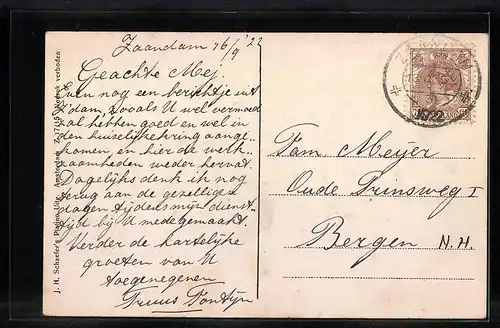 Zaandam 16/9 '22
Geachte Mej.
Even nog een berichtje uit
Z'dam, zooals U wel vermoed
al hebben goed en wel in
den huiselijke kring aange-
komen, en hier de werk-
zaamheden weder hervat.
Dagelijks denk ik nog
terug aan de gezellige
dagen tijdens mijn dienst-
tijd bij U medegemaakt.
Verder de hartelijke
groeten van U
toegenegenen
Truus Fontijn
Fam Meyer
Oude Prinsweg 1
Bergen N.H.
1922
J. H. Schaefer's Amsterdam verboden